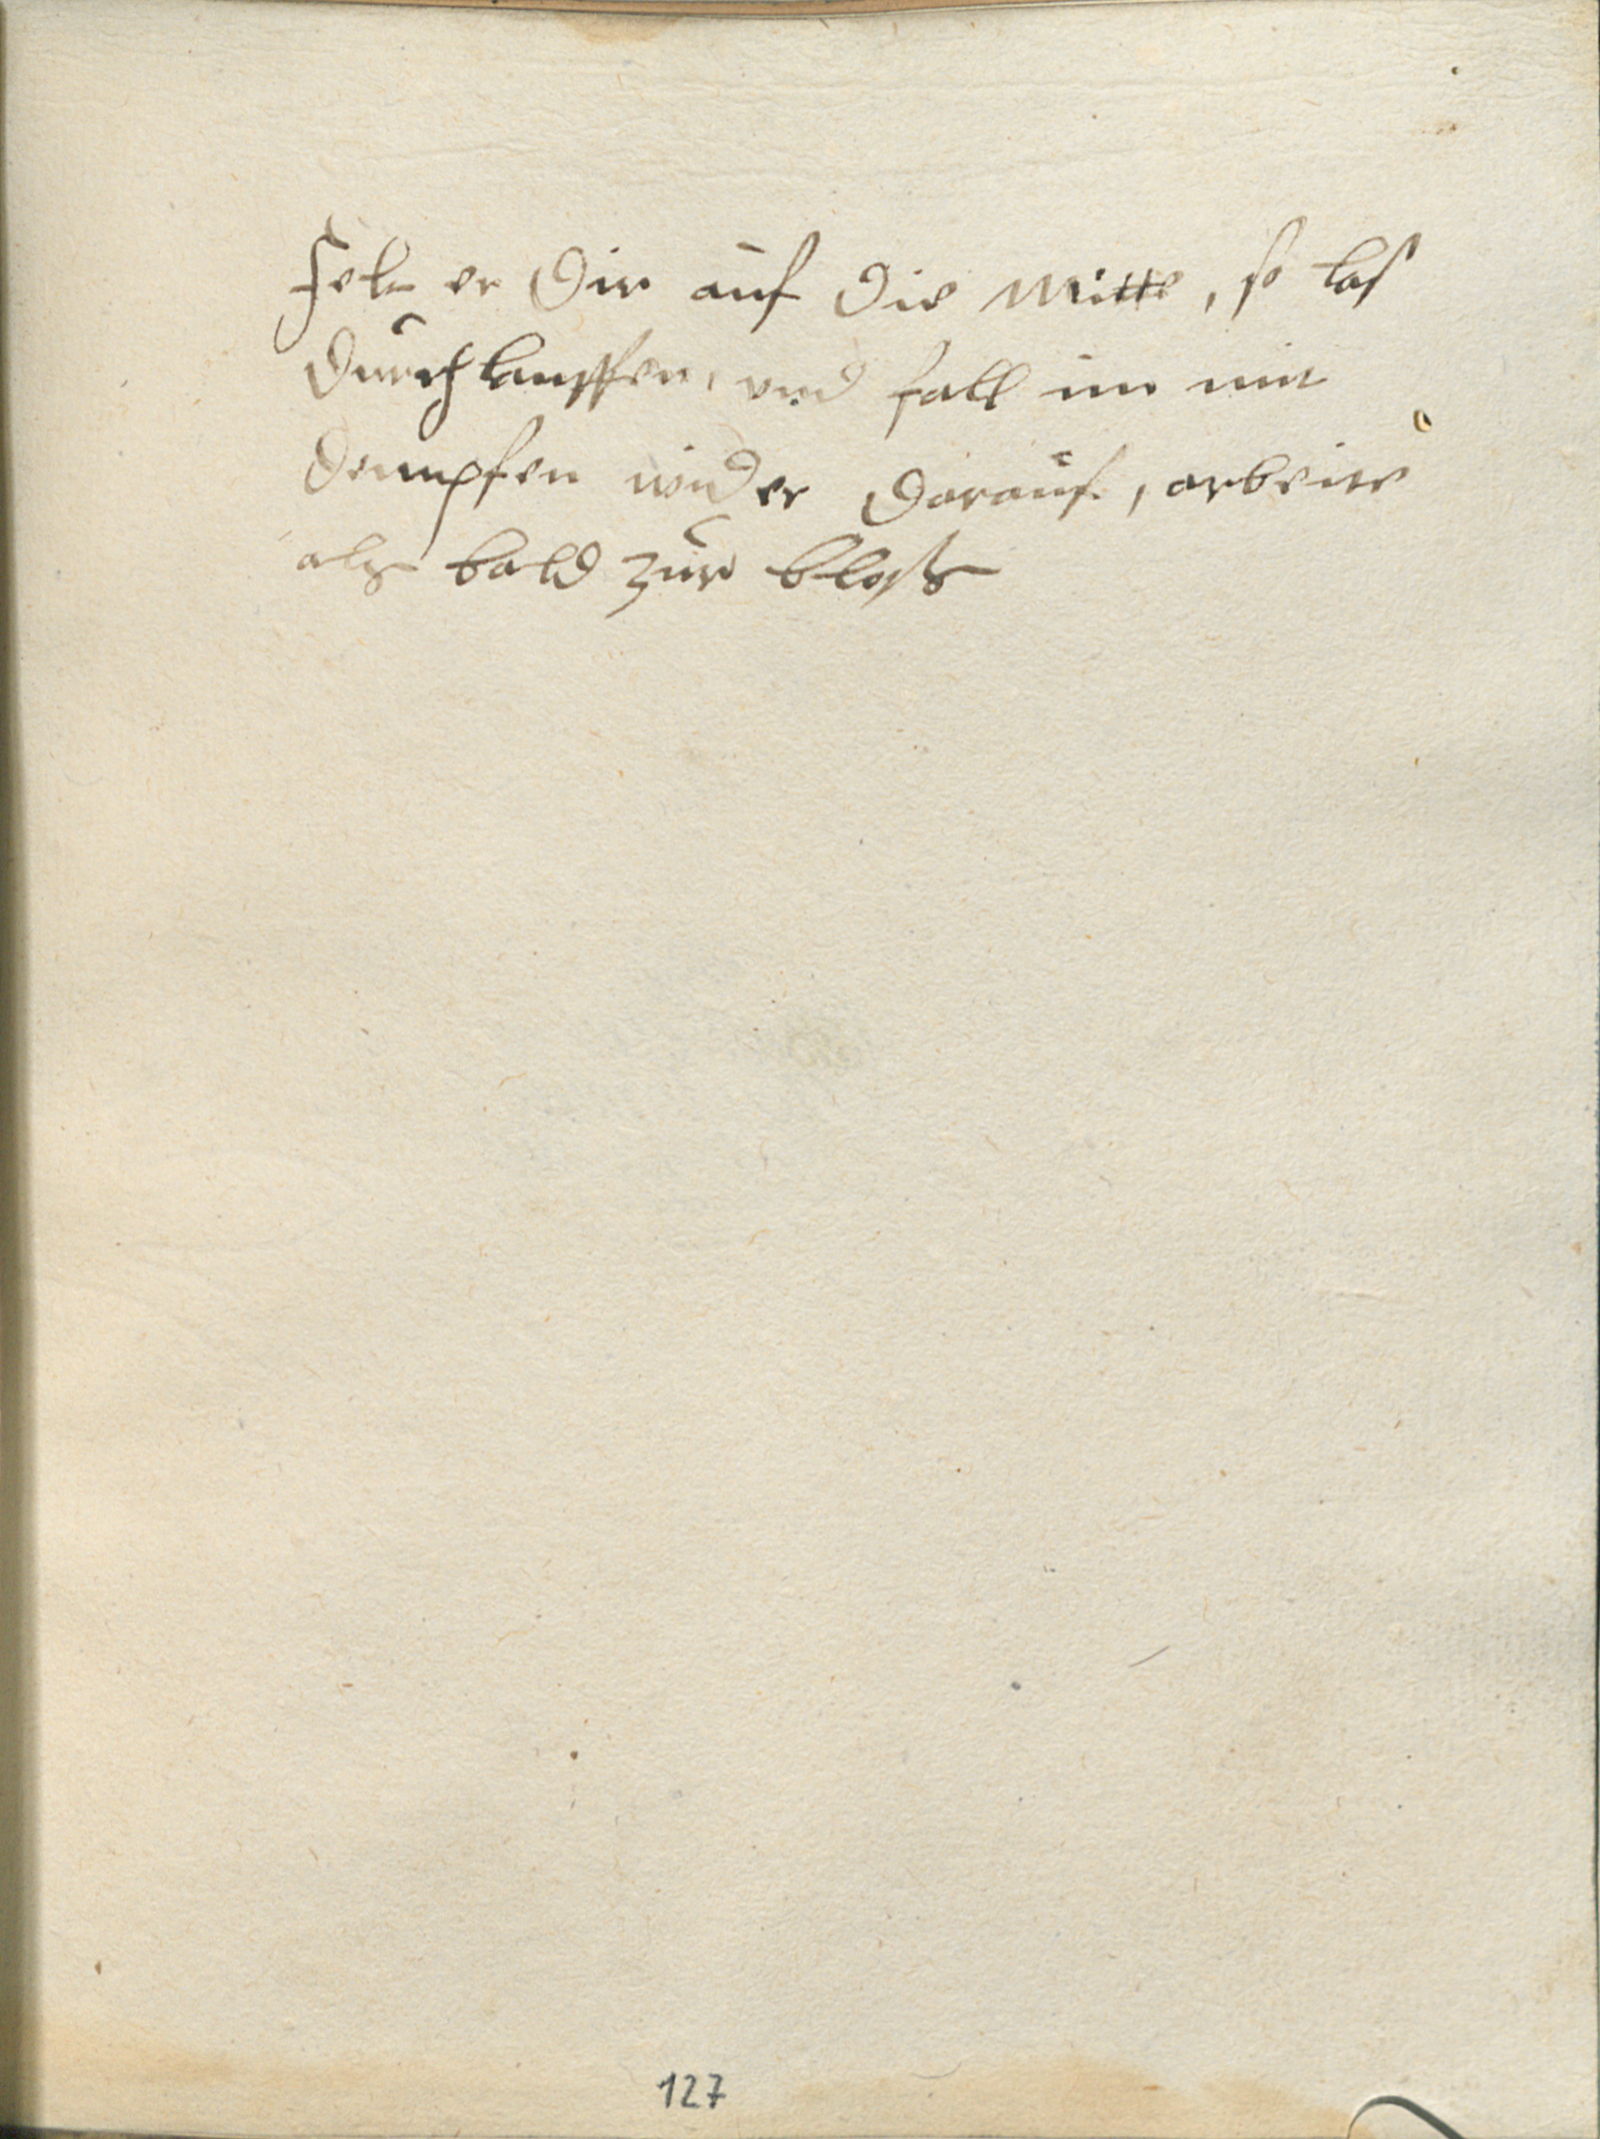 Felt er dir auf die Mitte, so las
durchlauffen, und fall im mit
dempfen wider darauf, arbeite
als bald zur bloß
127